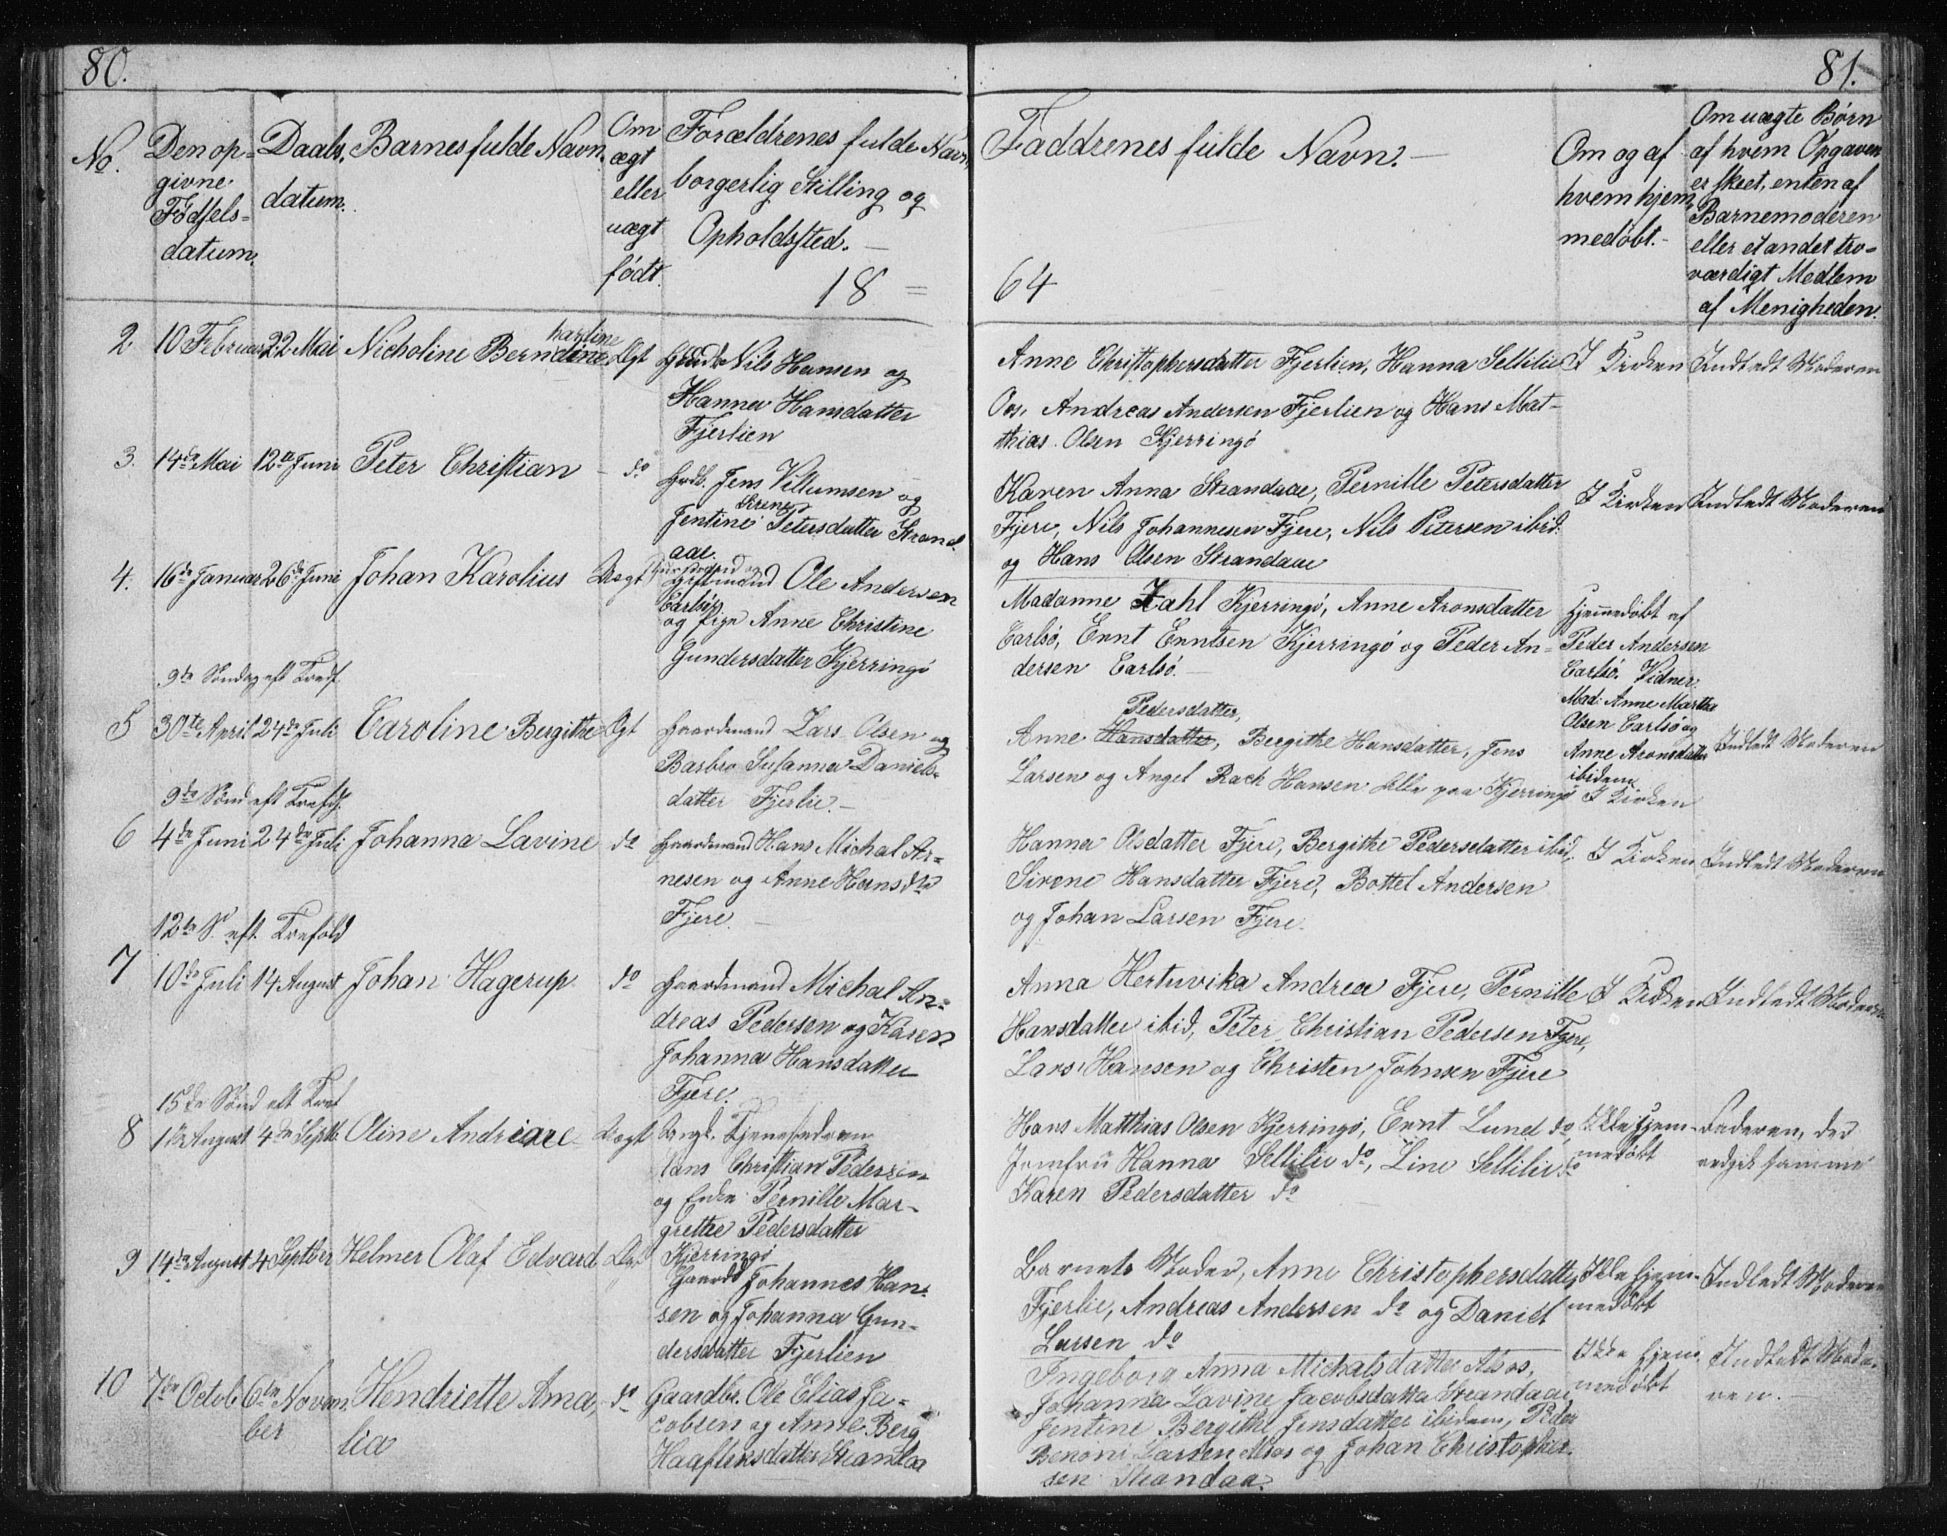 80.
81.
No.
Den opgivne Fødselsdatum.
Daabsdatum.
Barnes fulde Navn.
Om ægt eller uægt født.
Forældrenes fulde Navn, borgerlig Stilling og Opholdsted.
18
Faddrenes fulde Navn.
64
Om og af hvem hjemmedøbt.
Om uægte Børn af hvem Opgaven er skeet, enten af Barnemoderen eller et andet troværdigt Medlem af Menigheden.
2. 10 Februar 22 Mai Nicholine Berndine Ægt
Nils Hansen og
Hanna Hansdatter
Fjerlien
Anne Christophersdatter Fjerlien, Hanna Sellilie
Andreas Andersen Fjerlien og Hans Mat-
thias Olsen Kjerringö
I Kirken
Indledt Moderen
3. 14de Mai 12te Juni Peter Christian do
Jens Villumsen og
Jentine Petersdatter Strand-
aae.
Karen Anna Strandaae, Pernille Petersdatter
Fjere, Nils Johannesen Fjere, Nils Petersen ibid.
og Hans Olsen Strandaae
I Kirken
Indledt Moderen
4. 16de Januar 26de Juni Johan Karolius Uægt
Ole Andersen
Carlsö
og Pige Anne Christine
Gundersdatter Kjerringö
Madame Zahl Kjerringö, Anne Aronsdatter
Carlsö, Ennt Enntsen Kjerringö og Peder An-
dersen Carlsö.
Hjemmedöbt af
Peder Andersen
Carlsö. Vidner:
Mad: Anne Martha
Olsen Carlsö og
Anne Aronsdatter
ibidem
9de Söndag eft Tref.
5 30te April 24de Juli Caroline Bergithe Ægt
Gaardmand Lars Olsen og
Barbro Susanna Daniels-
datter Fjerlie.
Pedersdatter,
Anne Hansdatter, Bergithe Hansdatter, Jens
Larsen og Angel Rack Hansen Alle paa Kjerringö
I Kirken
Indledt Moderen
9de Sönd eft Trefd.
6 4de Juni 24de Juli Johanna Lavine do
Gaardmand Hans Michal Ar-
nesen og Anne Hansdtr
Fjere.
Hanna Olsdatter Fjere, Bergithe Pedersdatter ibid,
Sirene Hansdatter Fjere, Bottel Andersen
og Johan Larsen Fjere.
I Kirken
Indledt Moderen
12te S. eft. Trefold
7 10de Juli 14 August Johan Hagerup do
Gaardmand Michal An-
dreas Pedersen og Karen
Johanna Hansdatter
Fjere.
Anna Hertuvika Andrea Fjere, Pernille
Hansdatter ibid, Peter Christian Pedersen Fjere,
Lars Hansen og Christen Johnsen Fjere
I Kirken
Indledt Moderen
15de Sönd eft Tref
8 1ste August 4de Septbr Oline Andreae Uægt
Ungk. Tjenesedreng
Hans Christian Pedersen
og Enke Pernille Mar-
grethe Pedersdatter
Kjerringö
Hans Matthias Olsen Kjerringö, Ennt Lund do,
Jomfru Hanna Sellilie do, Line Sellilie do
Karen Pedersdatter do
Ikke hjem-
medöbt
Faderen, der
vedgik samme
9 14de August 4 Septber Helmer Olaf Edvard Ægt
Gaardb Johannes Han-
sen og Johanna Gun-
dersdatter Fjerlien
Barnets Moder, Anne Christophersdatter
Fjerlie, Andreas Andersen do og Daniel
Larsen do
Ikke hjem-
medöbt
Indledt Moderen
10 7de Octob 6te Novem- Hendriette Ama- do
ber lia
Gaardbr. Ole Elias Ja-
cobsen og Anne Berg
Haaftensdatter Strandaa
Ingeborg Anna Michalsdatter Alsos,
Johanna Lavine Jacobsdatter Strandaae,
Jentine Bergithe Jensdatter ibidem, Peder
Benoni Larsen Alsos og Johan Christopher-
sen Strandaa.
Ikke hjem-
medöbt
Indledt Mode-
ren.